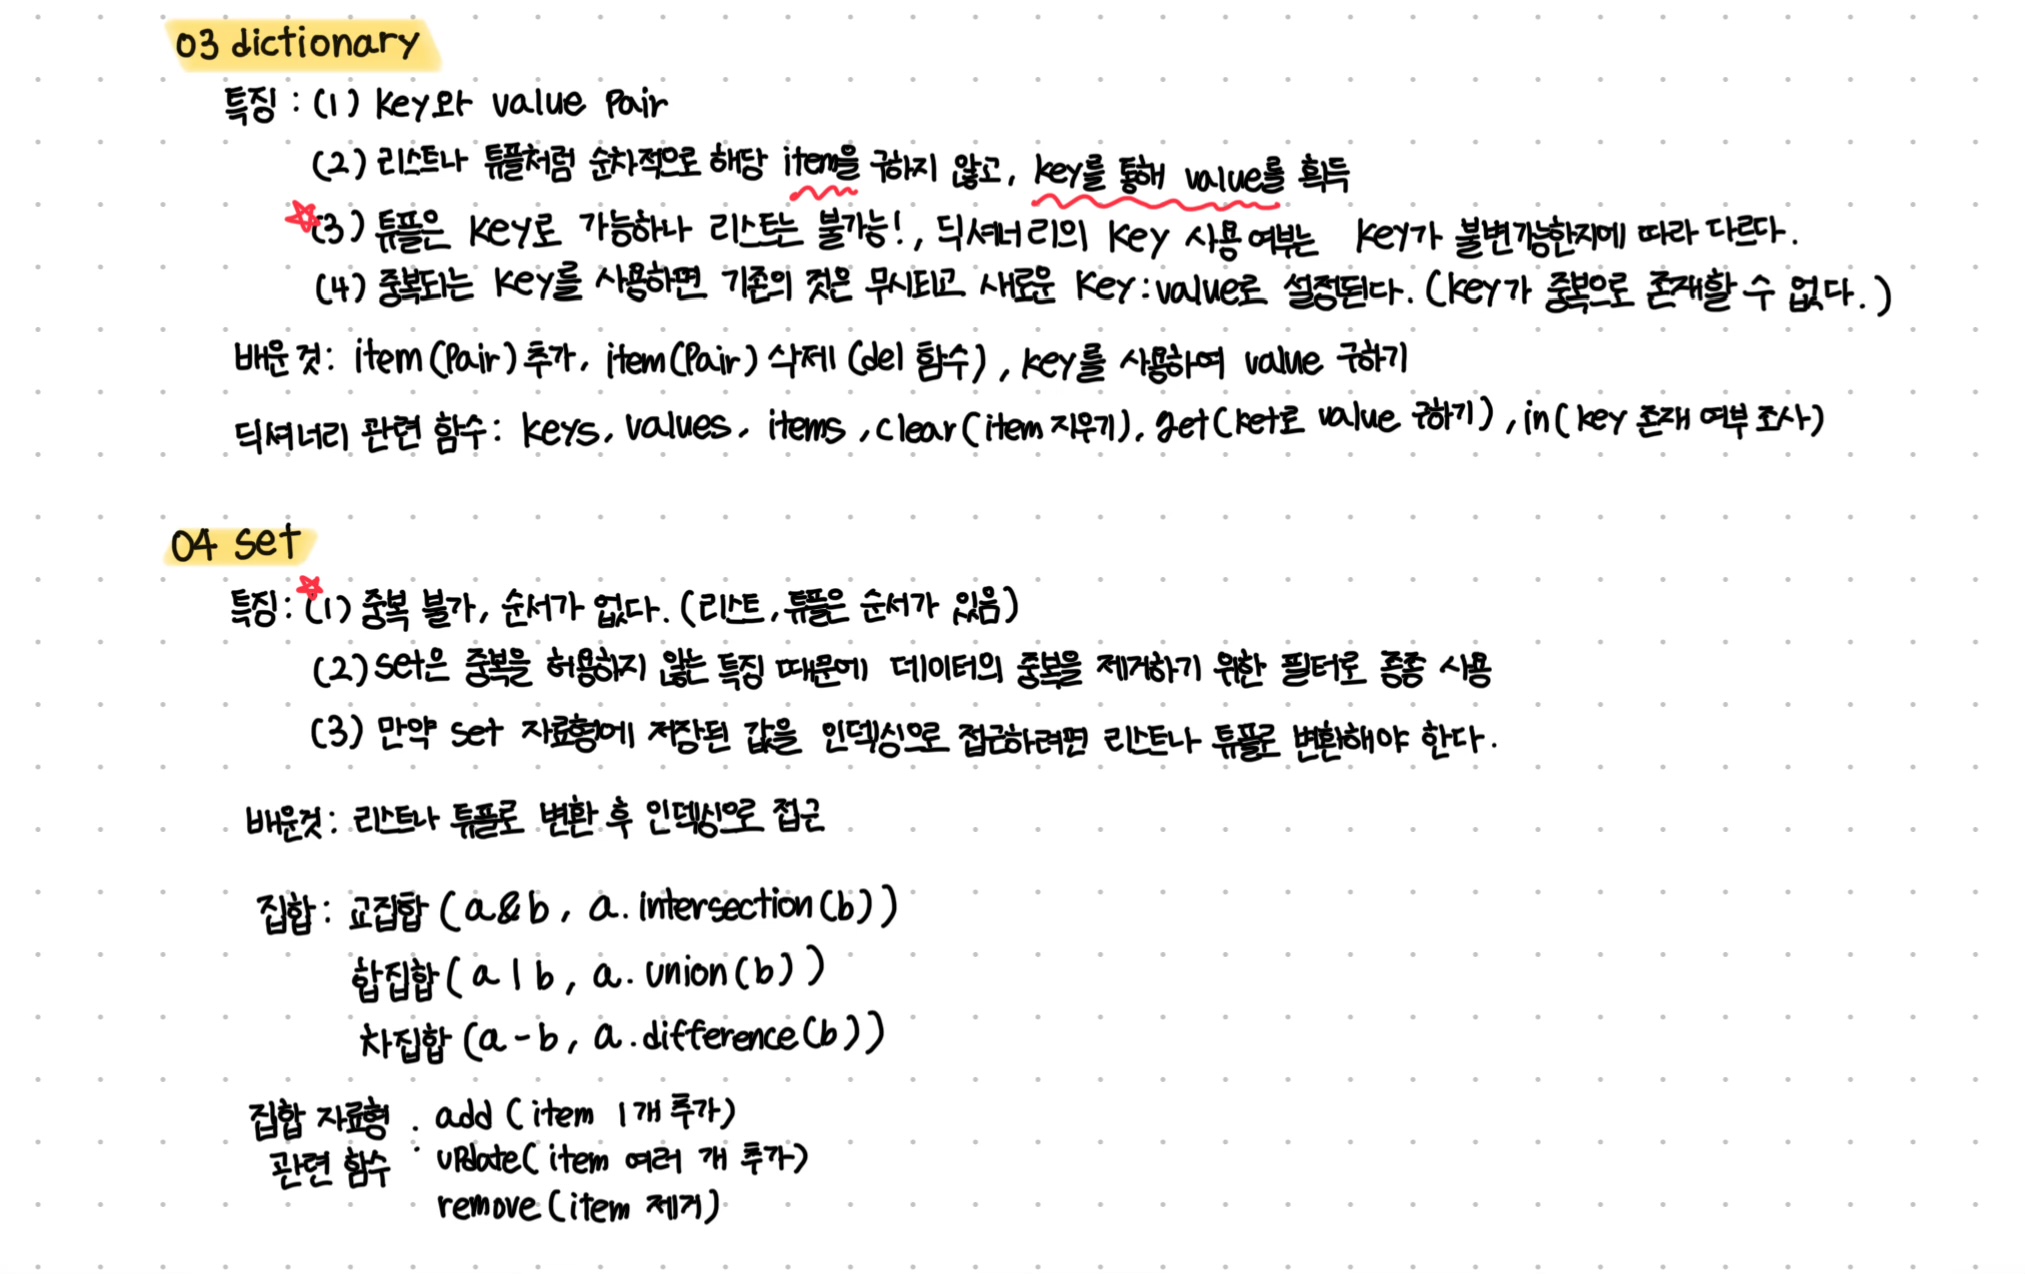 03 dictionary
특징 : (1) key와 value pair
(2) 리스트나 튜플처럼 순차적으로 해당 item을 구하지 않고, key를 통해 value를 획득
(3) 튜플은 key로 가능하나 리스트는 불가능!, 딕셔너리의 key 사용 여부는 key가 불변가능한지에 따라 다르다.
(4) 중복되는 key를 사용하면 기존의 것은 무시되고 새로운 key:value로 설정된다. (key가 중복으로 존재할 수 없다.)
배운 것: item(pair) 추가, item(pair) 삭제 (del 함수), key를 사용하여 value 구하기
딕셔너리 관련 함수: keys, values, items, clear(item 지우기), get(ket로 value 구하기), in(key 존재 여부 조사)
04 set
특징: (1) 중복 불가, 순서가 없다. (리스트, 튜플은 순서가 있음)
(2) set은 중복을 허용하지 않는 특징 때문에 데이터의 중복을 제거하기 위한 필터로 종종 사용
(3) 만약 set 자료형에 저장된 값을 인덱싱으로 접근하려면 리스트나 튜플로 변환해야 한다.
배운것: 리스트나 튜플로 변환 후 인덱싱으로 접근
집합: 교집합 (a&b, a.intersection(b))
합집합 (a|b, a.union(b))
차집합 (a-b, a.difference(b))
집합 자료형 관련 함수 : add (item 1개 추가)
update(item 여러 개 추가)
remove (item 제거)